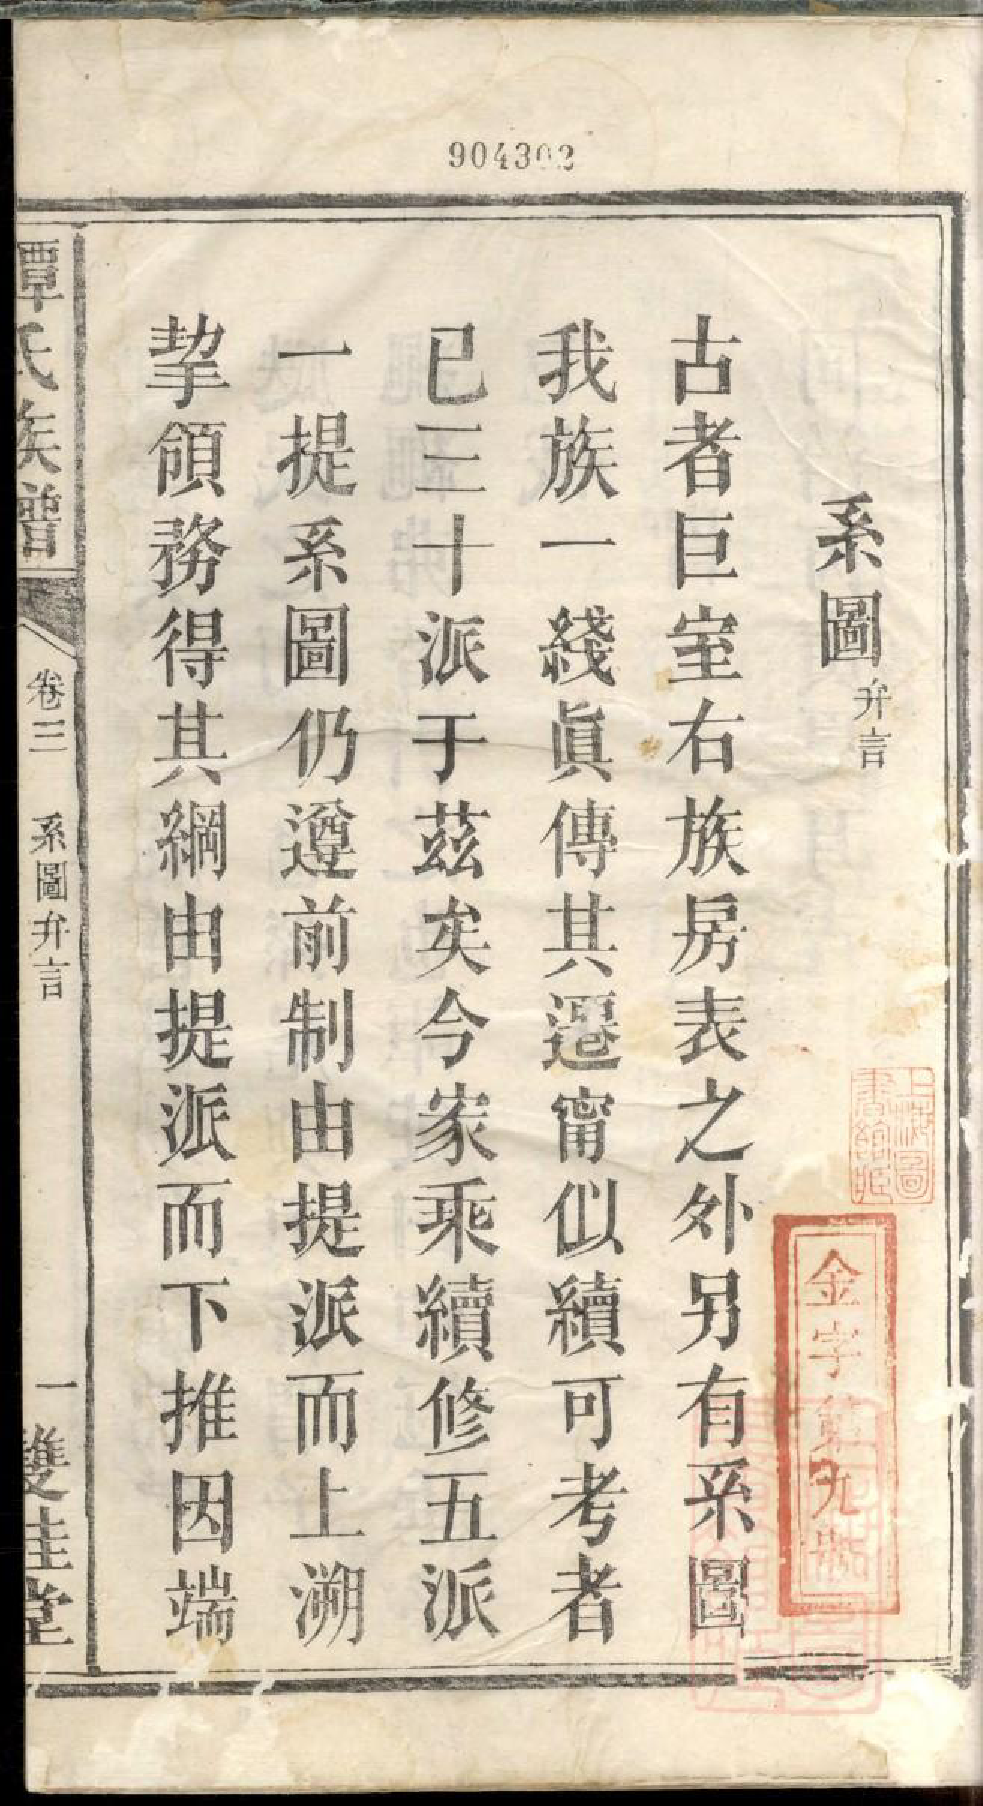 904302
系圖弁言
古者巨室右族房表之外另有系圖
我族一綫眞傳其遷甯似續可考者
已三十派于茲矣今家乘續修五派
一提系圖仍遵前制由提派而上溯
挈領務得其綱由提派而下推因端
譚氏族譜
卷三
系圖弁言
一
雙桂堂
上海圖書館藏
金字第九號